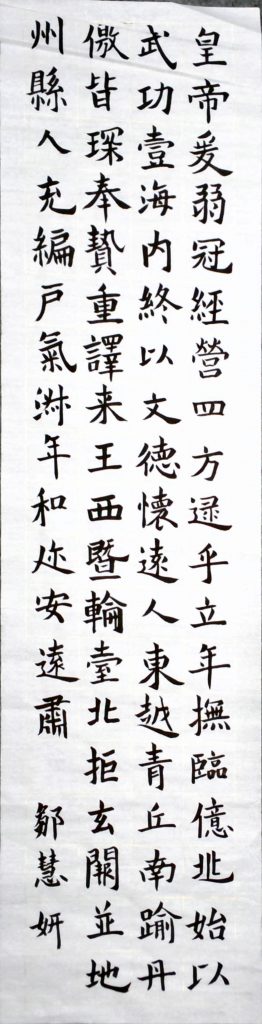 皇帝爰弱冠經營四方逮乎立年撫臨億兆始以
武功壹海内終以文德懷遠人東越青丘南踰丹
徼皆琛奉贄重譯来王西暨輪臺北拒玄闕並地
州縣人充編戶氣淑年和迩安遠肅 鄒慧妍